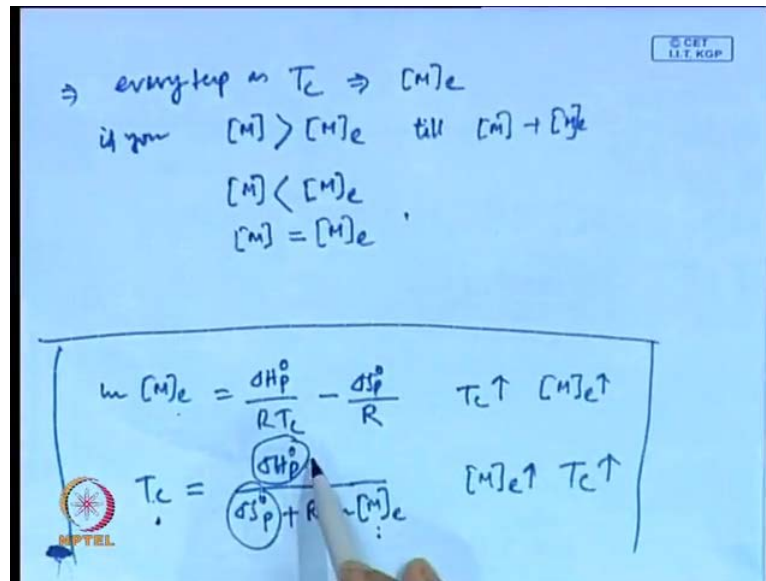 © CET
I.I.T. KGP
⇒ every temp as T_c ⇒ [M]_e
if you [M] > [M]_e till [M] → [M]_e
[M] < [M]_e
[M] = [M]_e
ln [M]_e = ΔH_p^0 / RT_c − ΔS_p^0 / R T_c↑ [M]_e↑
T_c = ΔH_p^0 / ΔS_p^0 + R [M]_e [M]_e↑ T_c↑
NPTEL